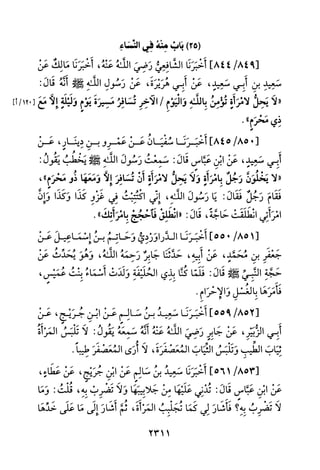 (٢٥) بَابٌ مِنْهُ فِي النِّسَاءِ
[٨٤٤/٨٤٩] أَخْبَرَنَا الشَّافِعِيُّ رَضِيَ اللَّهُ عَنْهُ، أَخْبَرَنَا مَالِكٌ عَنْ
سَعِيدِ بنِ أَبِي سَعِيدٍ، عَنْ أَبِي هُرَيْرَةَ، عَنْ رَسُولِ اللَّهِ ﷺ أَنَّهُ قَالَ:
«لَا يَحِلُّ لامْرَأَةٍ تُؤْمِنُ بِاللَّهِ وَالْيَوْمِ الآخِرِ / تُسَافِرُ مَسِيرَةَ يَوْمٍ وَلَيْلَةٍ إِلَّا مَعَ [١٢٠/أ]
ذِي مَحْرَمٍ».
[٨٤٥/٨٥٠] أَخْبَرَنَا سُفْيَانُ عَنْ عَمْرِو بنِ دِينَارٍ، عَنْ
أَبِي سَعِيدٍ، عَنْ ابْنِ عَبَّاسٍ قَالَ: سَمِعْتُ رَسُولَ اللَّهِ ﷺ يَخْطُبُ يَقُولُ:
«لا يَخْلُوَنَّ رَجُلٌ بِامْرَأَةٍ وَلَا يَحِلُّ لامْرَأَةٍ أَنْ تُسَافِرَ إِلَّا وَمَعَهَا ذُو مَحْرَمٍ»،
فَقَامَ رَجُلٌ فَقَالَ: يَا رَسُولَ اللَّهِ، إِنِّي اكْتُتِبْتُ فِي غَزْوَةِ كَذَا وَكَذَا وَإِنَّ
امْرَأَتِي انْطَلَقَتْ حَاجَّةً، قَالَ: «انْطَلِقْ فَاحْجُجْ بِامْرَأَتِكَ».
[٥٥٠/٨٥١] أَخْبَرَنَا الدَّرَاوَرْدِيُّ وَحَاتِمُ بنُ إِسْمَاعِيلَ عَنْ
جَعْفَرِ بْنِ مُحَمَّدٍ، عَنْ أَبِيهِ، حَدَّثَنَا جَابِرٌ رَحِمَهُ اللَّهُ، وَهُوَ يُحَدِّثُ عَنْ
حَجَّةِ النَّبِيِّ ﷺ قَالَ: فَلَمَّا كُنَّا بِذِي الْحُلَيْفَةِ وَلَدَتْ أَسْمَاءُ بِنْتُ عُمَيْسٍ،
فَأَمَرَهَا بِالْغُسْلِ وَالإِحْرَامِ.
[٥٥٩/٨٥٢] أَخْبَرَنَا سَعِيدُ بنُ سَالِمٍ عَنْ ابْنِ جُرَيْجٍ، عَنْ
أَبِي الزُّبَيْرِ، عَنْ جَابِرٍ رَضِيَ اللَّهُ عَنْهُ أَنَّهُ سَمِعَهُ يَقُولُ: لَا تَلْبَسُ الْمَرْأَةُ
ثِيَابَ الطِّيبِ وَتَلْبَسُ الثِّيَابَ الْمُعَصْفَرَةَ، لَا أَرَى الْمُعَصْفَرَ طِيباً.
[٥٦١/٨٥٣] أَخْبَرَنَا سَعِيدُ بنُ سَالِمٍ عَنْ ابْنِ جُرَيْجٍ، عَنْ عَطَاءٍ،
عَنْ ابْنِ عَبَّاسٍ قَالَ: تُدْنِي عَلَيْهَا مِنْ جَلَابِيبِهَا وَلَا تَضْرِبْ بِهِ، قُلْتُ: وَمَا
لَا تَضْرِبْ بِهِ؟ فَأَشَارَ لِي كَمَا تُجَلْبِبُ الْمَرْأَةَ، ثُمَّ أَشَارَ إِلَى مَا عَلَى خَدِّهَا
٢٣١١